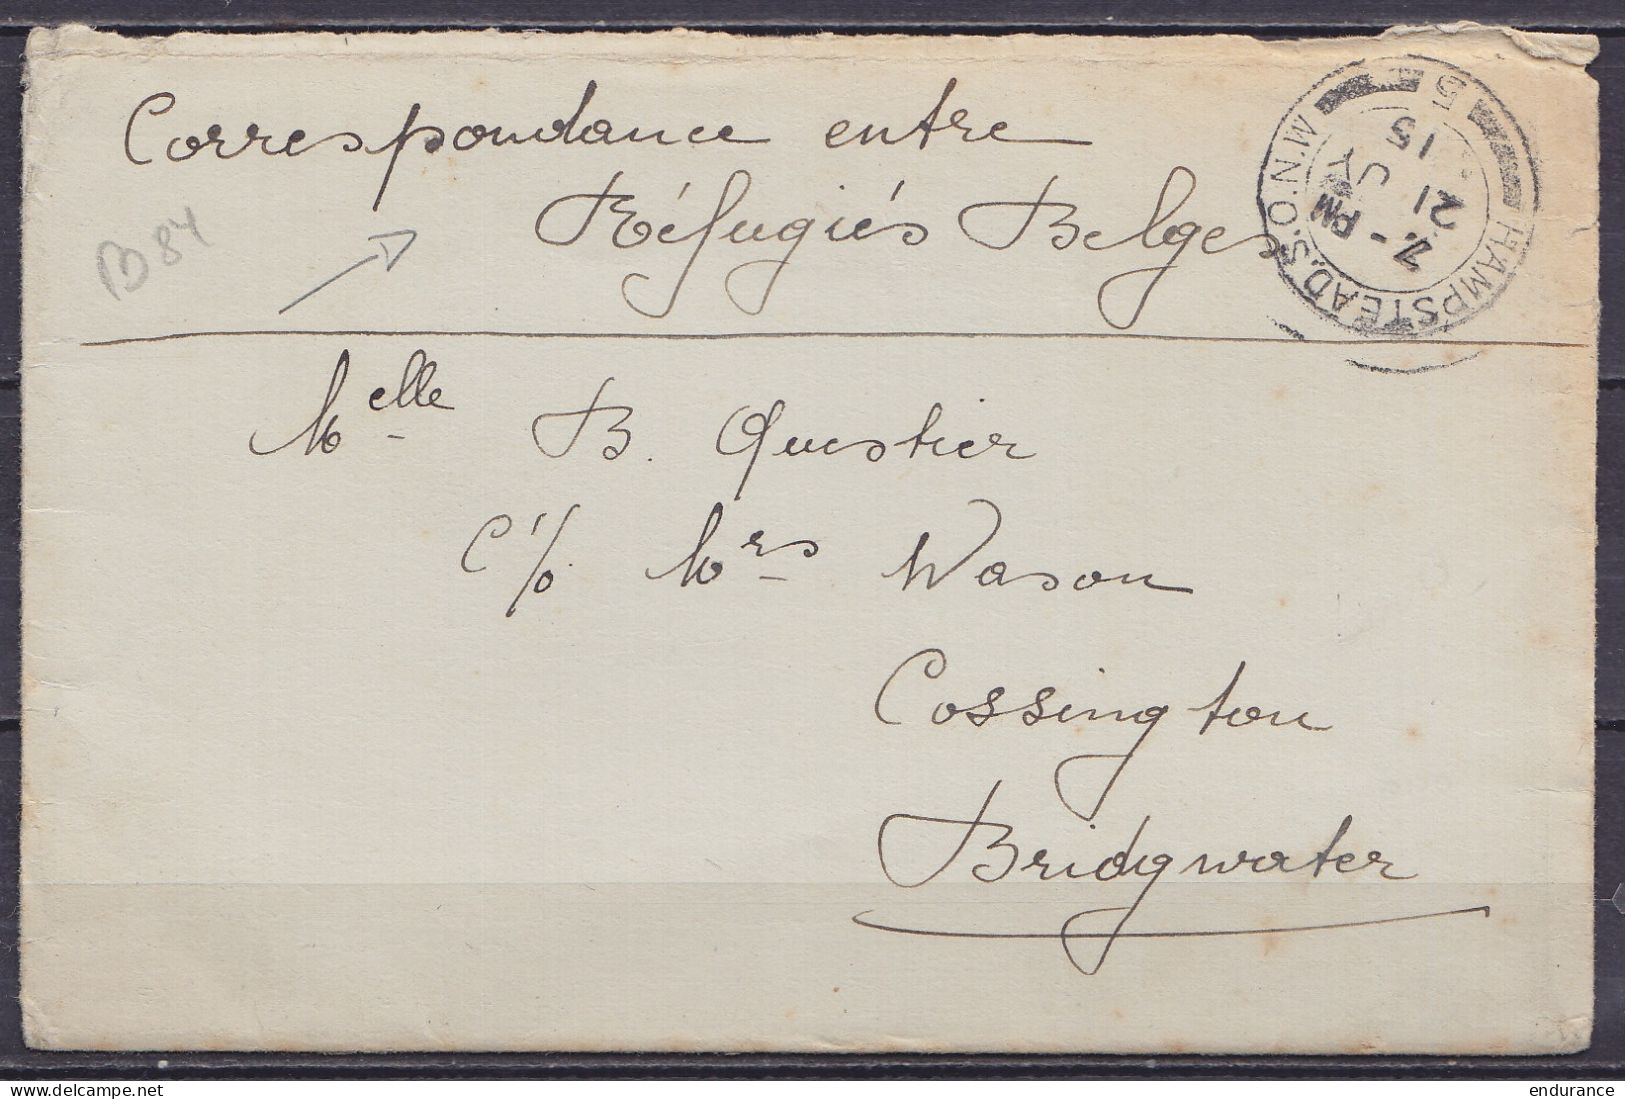 Correspondance entre
Réfugiés Belges
B84
HAMPSTEAD.S.O.N.W.
7 - PM
21 JY
15
5
Melle B. Questier
C/o. Mrs Wason
Cossington
Bridgwater
endurance